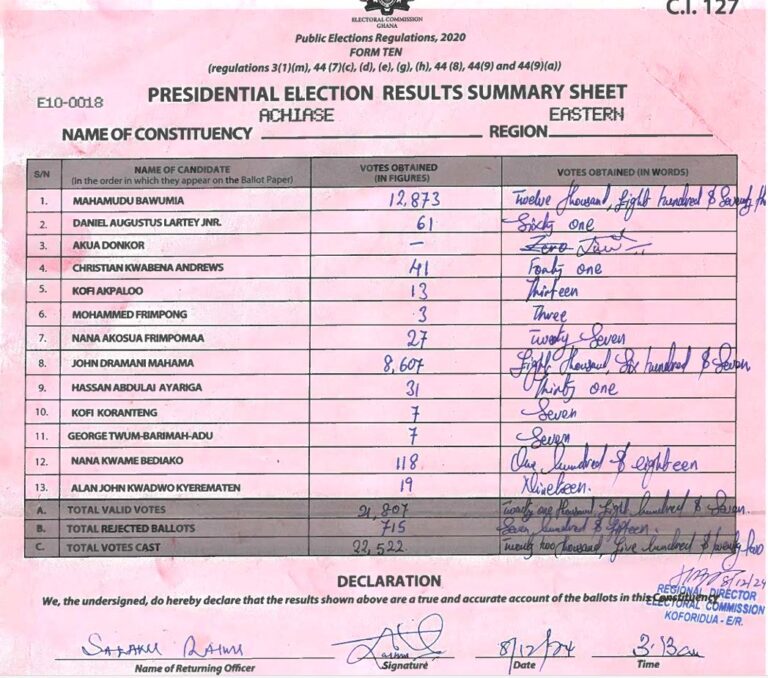 C.I. 127
ELECTORAL COMMISSION
GHANA
Public Elections Regulations, 2020
FORM TEN
(regulations 3(1)(m), 44 (7)(c), (d), (e), (g), (h), 44 (8), 44(9) and 44(9)(a))
E10-0018
PRESIDENTIAL ELECTION RESULTS SUMMARY SHEET
NAME OF CONSTITUENCY ACHIASE REGION EASTERN
S/N NAME OF CANDIDATE (In the order in which they appear on the Ballot Paper) VOTES OBTAINED (IN FIGURES) VOTES OBTAINED (IN WORDS)
1. MAHAMUDU BAWUMIA 12,873 Twelve thousand, Eight hundred & Seventy th
2. DANIEL AUGUSTUS LARTEY JNR. 61 Sixty one
3. AKUA DONKOR — Zero
4. CHRISTIAN KWABENA ANDREWS 41 Forty one
5. KOFI AKPALOO 13 Thirteen
6. MOHAMMED FRIMPONG 3 Three
7. NANA AKOSUA FRIMPOMAA 27 Twenty Seven
8. JOHN DRAMANI MAHAMA 8,607 Eight thousand, Six hundred & Seven
9. HASSAN ABDULAI AYARIGA 31 Thirty one
10. KOFI KORANTENG 7 Seven
11. GEORGE TWUM-BARIMAH-ADU 7 Seven
12. NANA KWAME BEDIAKO 118 One hundred & eighteen
13. ALAN JOHN KWADWO KYEREMATEN 19 Nineteen.
A. TOTAL VALID VOTES 21,807 Twenty one thousand, Eight hundred & Seven.
B. TOTAL REJECTED BALLOTS 715 Seven hundred & fifteen.
C. TOTAL VOTES CAST 22,522 Twenty two thousand, Five hundred & twenty two
8/12/24
DECLARATION
We, the undersigned, do hereby declare that the results shown above are a true and accurate account of the ballots in this Constituency.
REGIONAL DIRECTOR
ELECTORAL COMMISSION
KOFORIDUA - E/R.
8/12/24 3:13am
Name of Returning Officer Signature Date Time